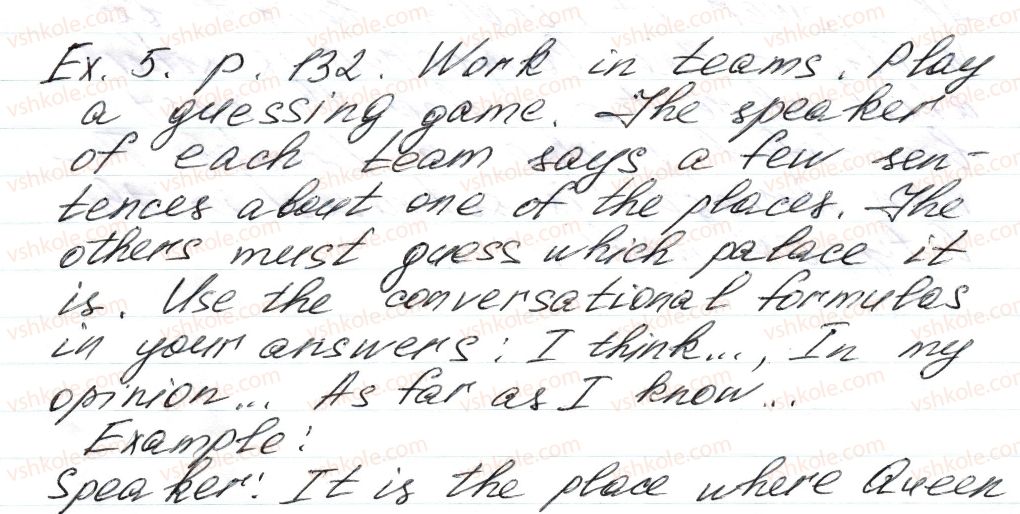 Ex. 5. p. 132. Work in teams. Play
a guessing game. The speaker
of each team says a few sen-
tences about one of the places. The
others must guess which palace it
is. Use the conversational formulas
in your answers: I think..., In my
opinion... As far as I know...
Example:
Speaker: It is the place where Queen